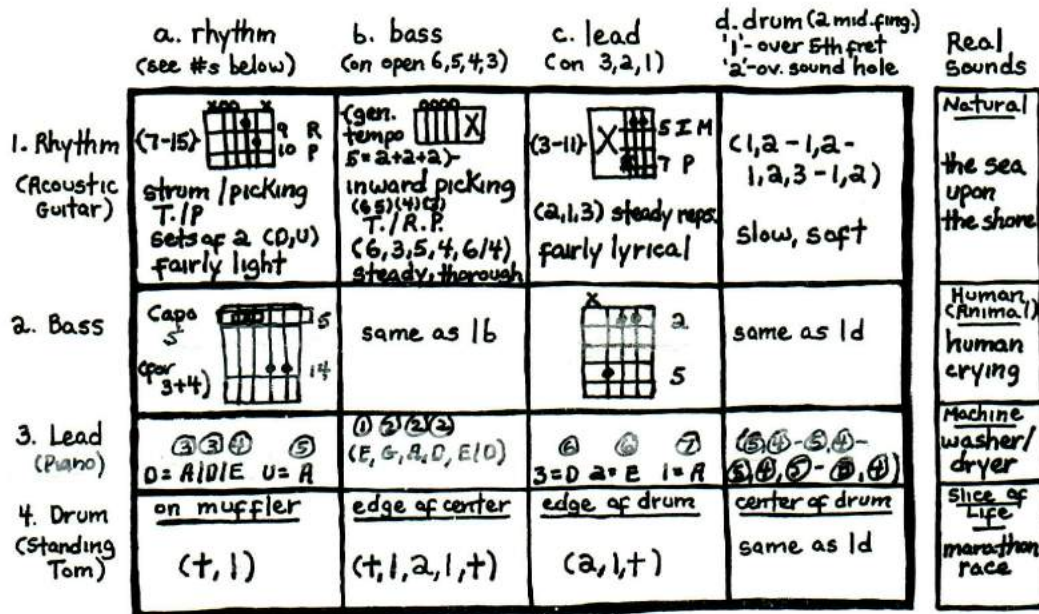 a. rhythm
(see #s below)
b. bass
(on open 6,5,4,3)
c. lead
(on 3,2,1)
d. drum (2 mid. fing.)
'1'- over 5th fret
'2'-ov. sound hole
Real
Sounds
1. Rhythm
(Acoustic
Guitar)
(7-15)
xoo x
9 R
10 P
strum/picking
T./P
sets of 2 (D,U)
fairly light
(gen.
tempo
5=2+2+2)-
oooo
X
inward picking
(6 5)(4)(3)
T./R.P.
(6,3,5,4,6/4)
steady, thorough
(3-11)
X
5 I M
7 P
(2,1,3) steady reps.
fairly lyrical
(1,2-1,2-
1,2,3-1,2)
slow, soft
Natural
the sea
upon
the shore
2. Bass
Capo
5
(for
3+4)
5
same as 1b
X
2
5
same as 1d
Human
(Animal)
human
crying
3. Lead
(Piano)
3 3 4 5
D=A/D/E U=A
1 2 2 2
(E, G, A, D, E/D)
6 6 7
3=D 2=E 1=A
(5,4-5,4-
5,4,5-5,4)
Machine
washer/
dryer
4. Drum
(Standing
Tom)
on muffler
(t,1)
edge of center
(t,1,2,1,t)
edge of drum
(2,1,t)
center of drum
same as 1d
Slice of
Life
marathon
race